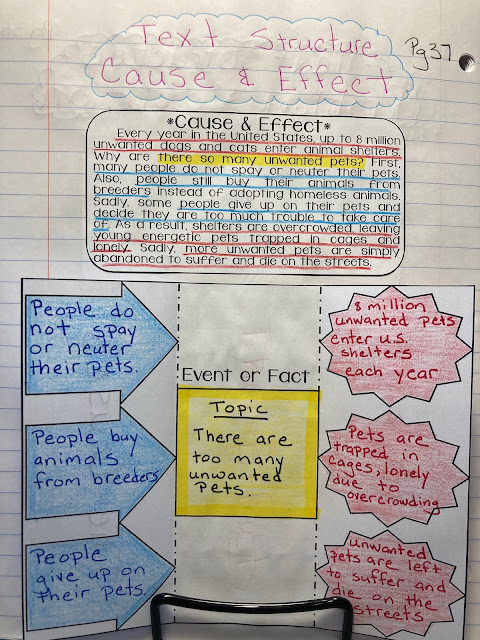 Text Structure
Pg37
Cause & Effect
*Cause & Effect*
Every year in the United States, up to 8 million
unwanted dogs and cats enter animal shelters.
Why are there so many unwanted pets? First,
many people do not spay or neuter their pets.
Also, people still buy their animals from
breeders instead of adopting homeless animals.
Sadly, some people give up on their pets and
decide they are too much trouble to take care
of. As a result, shelters are overcrowded, leaving
young energetic pets trapped in cages and
lonely. Sadly, more unwanted pets are simply
abandoned to suffer and die on the streets.
People do
not spay
or neuter
their pets.
People buy
animals
from breeders
People
give up on
their pets.
Event or Fact
Topic
There are
too many
unwanted
pets.
8 million
unwanted pets
enter U.S.
shelters
each year
Pets are
trapped in
cages, lonely
due to
overcrowding
unwanted
pets are left
to suffer and
die on the
streets